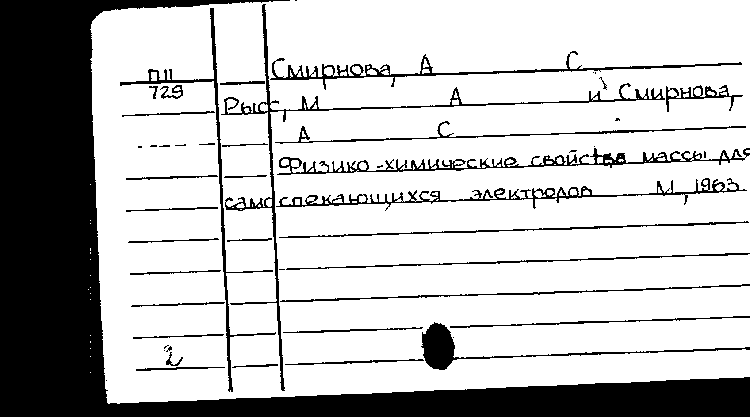 Смирнова, А С
П11
729
Рысс, М А и Смирнова,
А С
Физико-химические свойства массы для
самоспекающихся электродов М, 1963
2